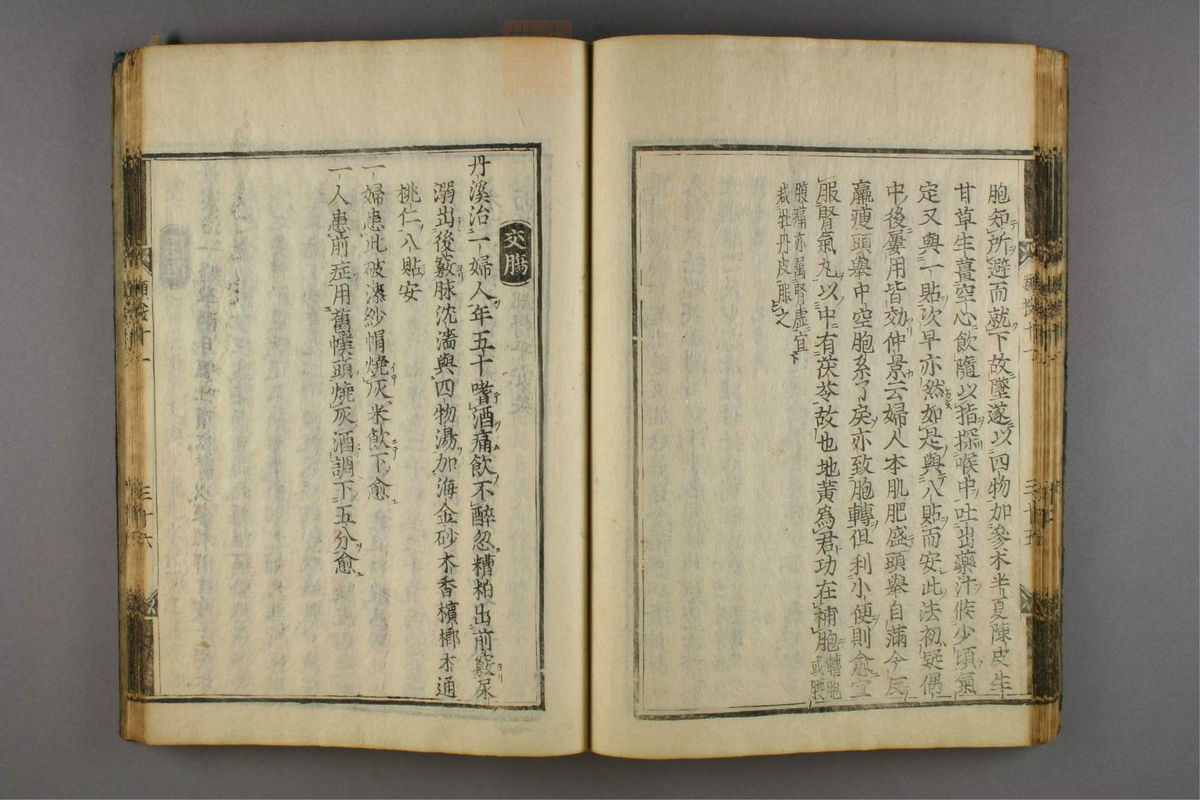 胞知所避而就下故墜遂以四物加參朮半夏陳皮生
甘草生薑空心飲隨以指探喉中吐出藥汁候少頃氣
定又與一貼次早亦然如是與八貼而安此法初疑偶
中後屢用皆效仲景云婦人本肌肥盛頭舉自滿今反
羸瘦頭舉中空胞系了戾亦致胞轉但利小便則愈宜
服腎氣丸以中有茯苓故也地黃為君功在補胞轉胞或腰
腹痛亦屬腎虛宜下
去牡丹皮服之
交腸
丹溪治一婦人年五十嗜酒痛飲不醉忽糟粕出前竅尿
溺出後竅脉沈濇與四物湯加海金砂木香檳榔木通
桃仁八貼安
一婦患此破漆紗帽燒灰米飲下愈
一人患前症用舊幞頭燒灰酒調下五分愈
三十五
三十六